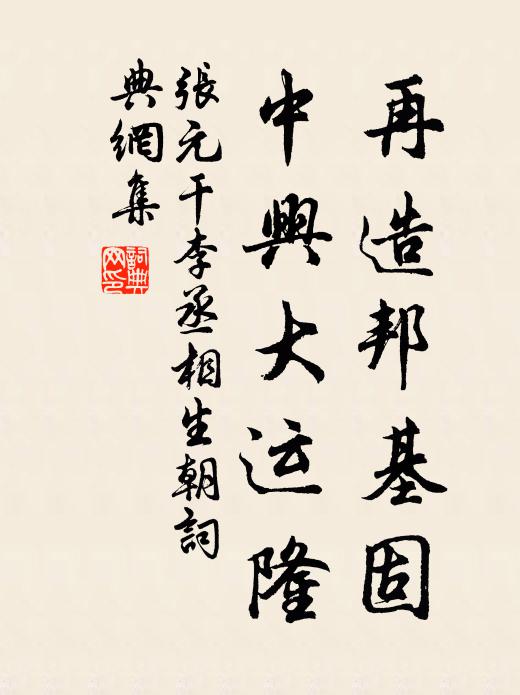 再造邦基固
中興大运隆
張元干李丞相生朝詞
典網集
詞典网印